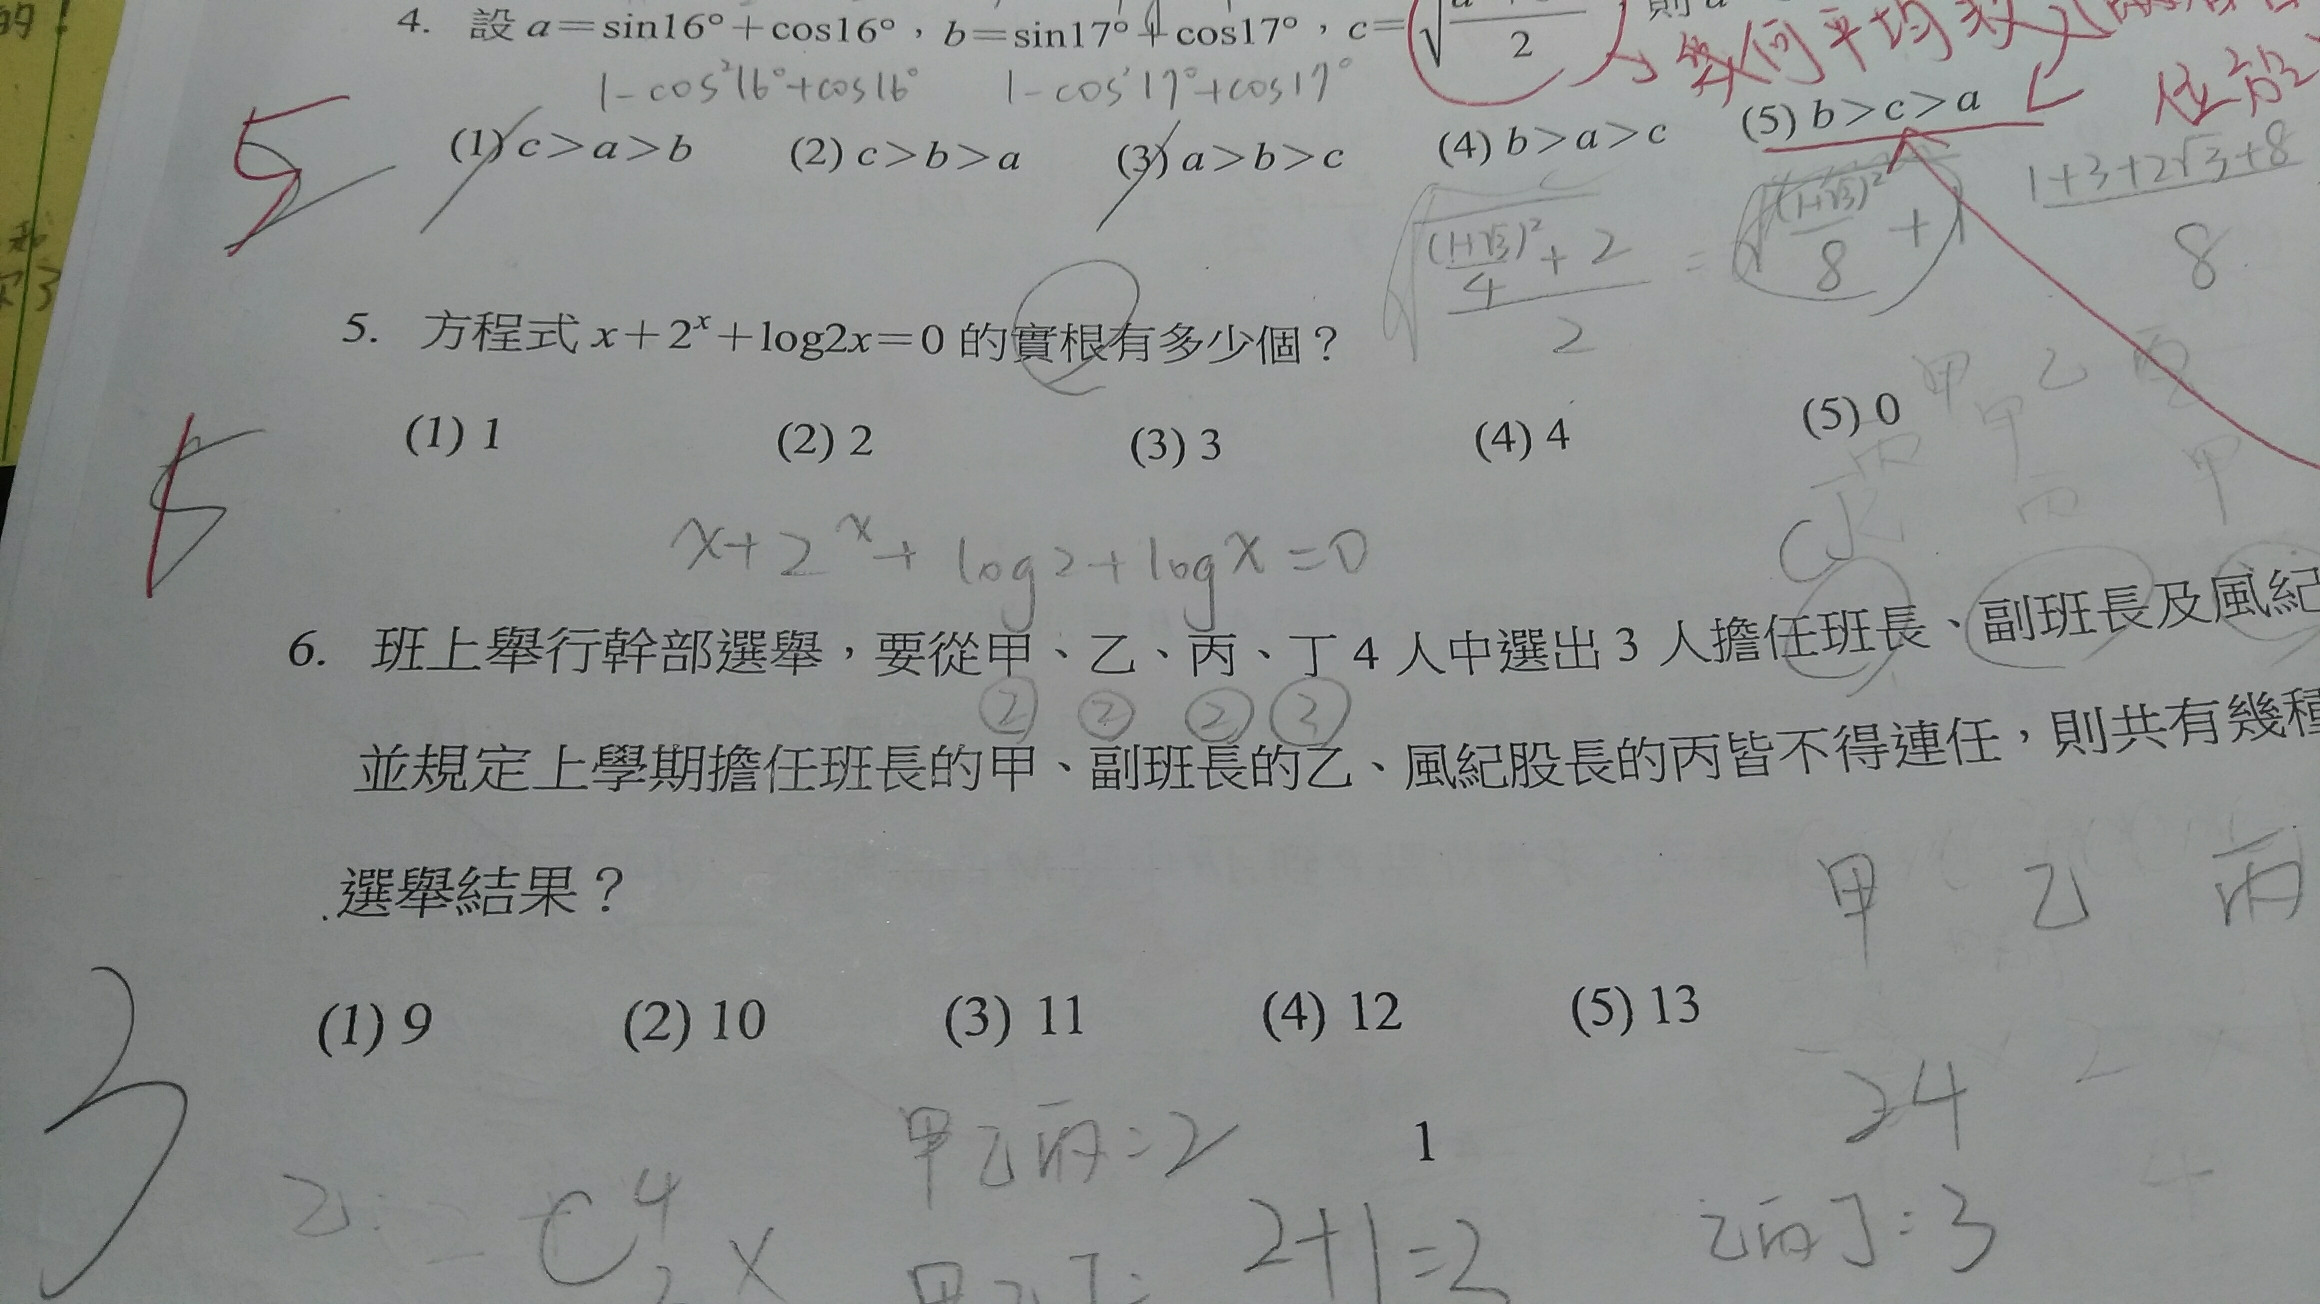 的!
4. 設 a=sin16°+cos16°，b=sin17°+cos17°，c=
1-cos²16°+cos16° 1-cos²17°+cos17°
幾何平均數
(1) c>a>b (2) c>b>a (3) a>b>c (4) b>a>c (5) b>c>a
5
√(((1+√3)²/4+2)/2) = √((1+√3)²/8+1)
1+3+2√3+8
8
5. 方程式 x+2ˣ+log2x=0 的實根有多少個？
甲 乙 丙
(1) 1 (2) 2 (3) 3 (4) 4 (5) 0
5
x+2ˣ+log2+logx=0
6. 班上舉行幹部選舉，要從甲、乙、丙、丁 4 人中選出 3 人擔任班長、副班長及風紀
② ② ② ③
並規定上學期擔任班長的甲、副班長的乙、風紀股長的丙皆不得連任，則共有幾種
選舉結果？
甲 乙 丙
(1) 9 (2) 10 (3) 11 (4) 12 (5) 13
3
甲乙丙=2
1
24
2+1=3
乙丙丁:3